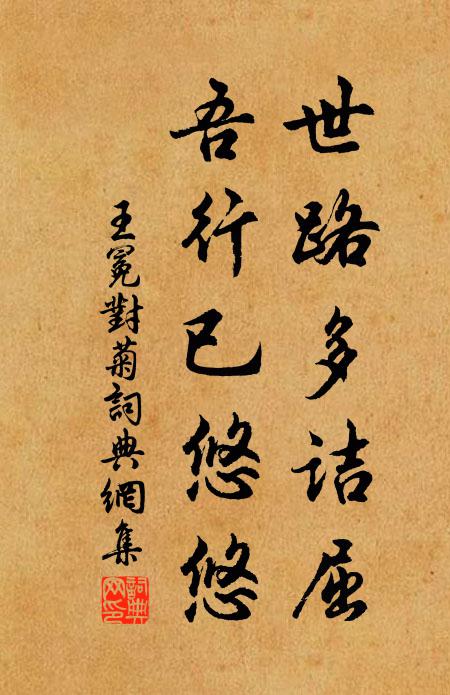 世路多詰屈
吾行已悠悠
王冕對菊詞典網集
詞典网印